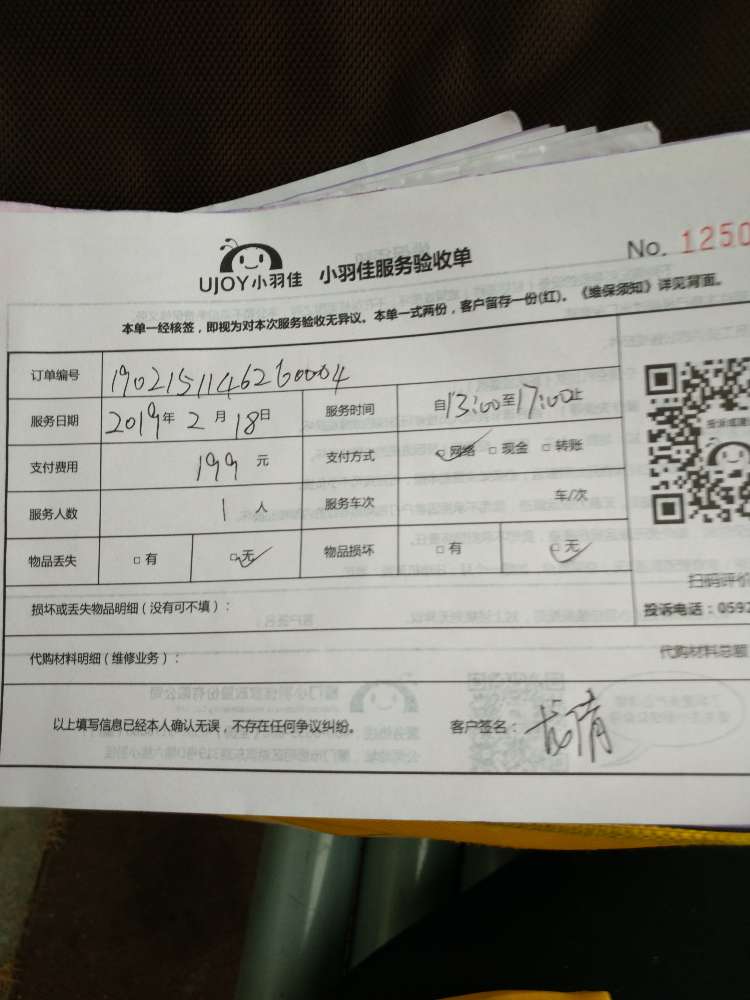 UJOY小羽佳 小羽佳服务验收单
No. 1250
本单一经核签，即视为对本次服务验收无异议。本单一式两份，客户留存一份(红)。《维保须知》详见背面。
订单编号 1902151146260004
服务日期 2019年 2 月 18日 服务时间 自13:00至17:00止
支付费用 199 元 支付方式 □网络 □现金 □转账
服务人数 1 人 服务车次 车/次
物品丢失 □有 □无 物品损坏 □有 □无
扫码评价
损坏或丢失物品明细（没有可不填）：
投诉电话：0592
代购材料明细（维修业务）：
代购材料总额
以上填写信息已经本人确认无误，不存在任何争议纠纷。 客户签名：